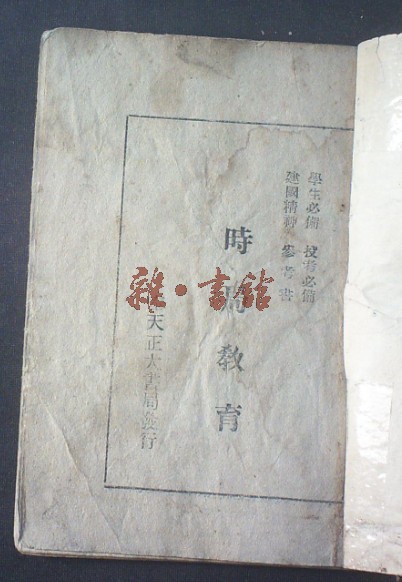 學生必備 投考必備
建國精神 參考書
時 教育
天正大書局發行
雜·書館